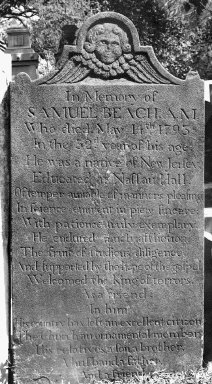 In Memory of
SAMUEL BEACH. AM
Who died May 14th 1793
In the 32d Year of his age
He was a native of New Jersey
Educated at Nassau Hall
Of temper amiable, of manners pleasing
In science eminent, in piety sincere
With patience truly exemplary
He endured much affliction
The fruit of studious diligence
And supported by the hope of the gospel
Welcomed the King of terrors.
As a friend
In him
His country has left an excellent citizen
The Church an ornamental member
His relatives a kind brother
And a friend